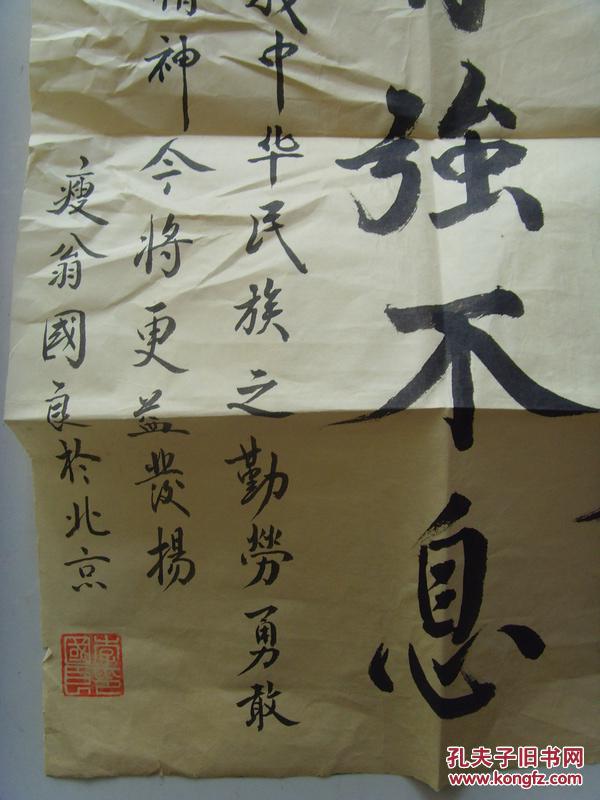 強不息
我中华民族之勤勞勇敢
精神今将更益發揚
瘦翁國良於北京
孔夫子旧书网
www.kongfz.com